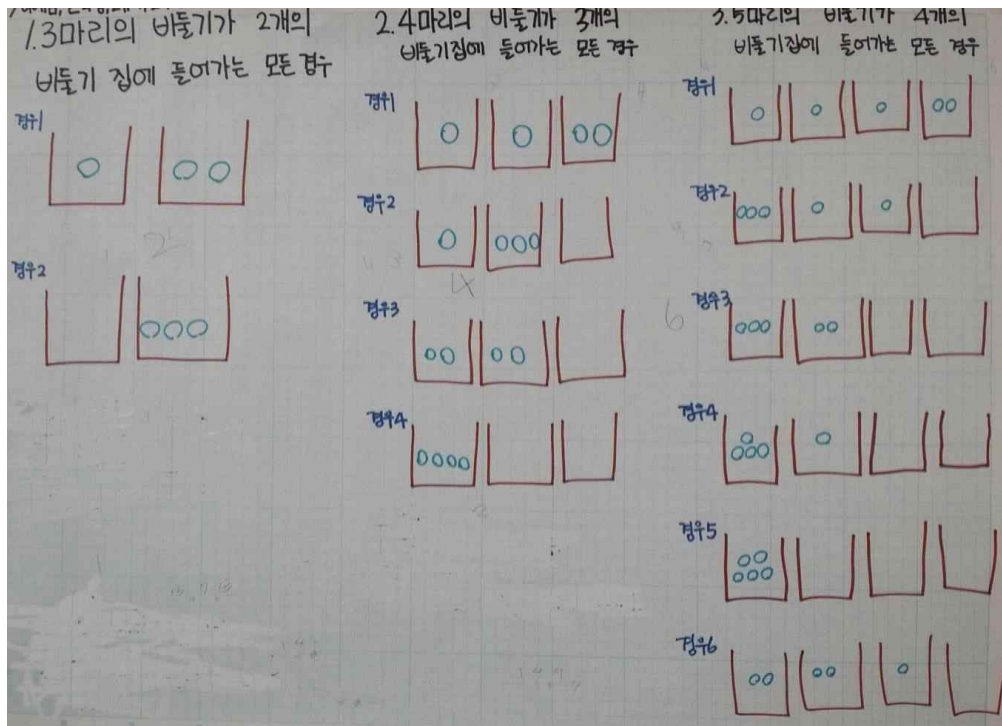 1.3마리의 비둘기가 2개의
비둘기 집에 들어가는 모든 경우
경우1
경우2
2
2.4마리의 비둘기가 3개의
비둘기집에 들어가는 모든 경우
경우1
경우2
경우3
경우4
4
3.5마리의 비둘기가 4개의
비둘기집에 들어가는 모든 경우
경우1
경우2
경우3
경우4
경우5
경우6
6